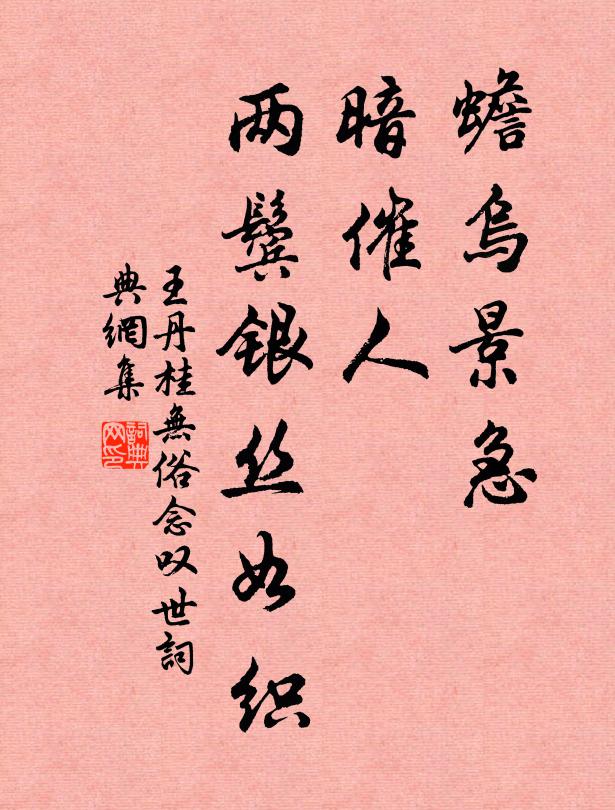 蟾乌景急
暗催人
两鬓银丝如织
王丹桂無俗念叹世詞
典網集
詞典网印